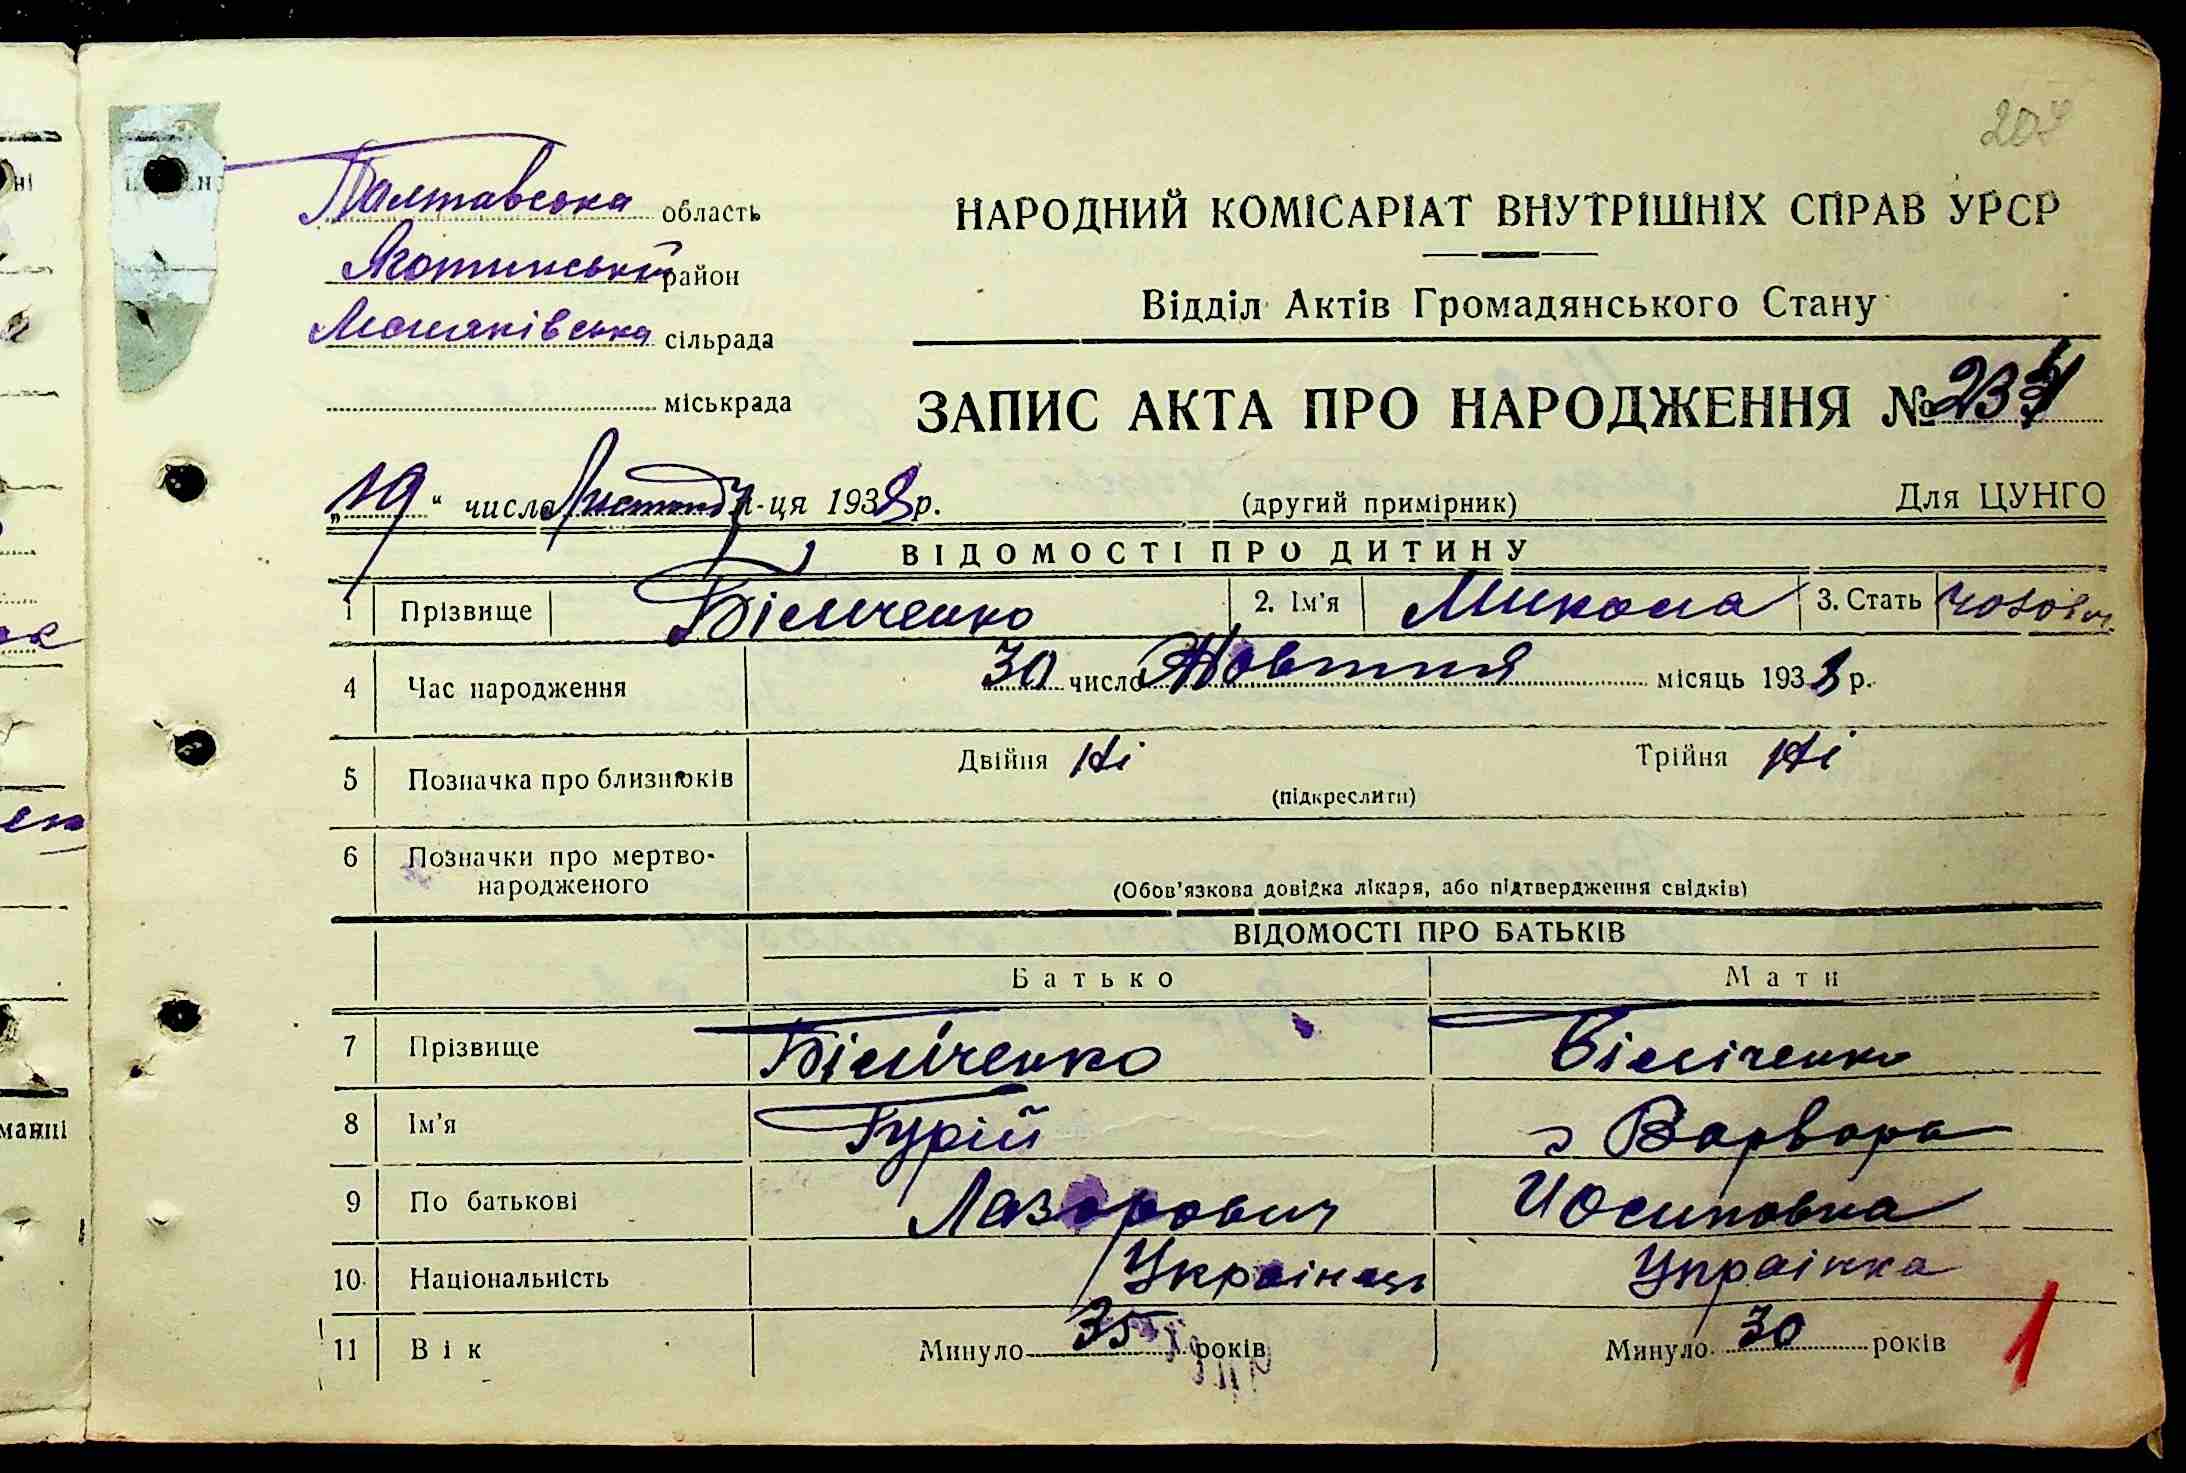 209
Полтавська область
Яготинський район
сільрада
міськрада
НАРОДНИЙ КОМІСАРІАТ ВНУТРІШНІХ СПРАВ УРСР
Відділ Актів Громадянського Стану
ЗАПИС АКТА ПРО НАРОДЖЕННЯ №
„19" числа Листопад м-ця 1938 р.
(другий примірник)
Для ЦУНГО
ВІДОМОСТІ ПРО ДИТИНУ
1 Прізвище Біліченко 2. Ім'я Микола 3. Стать чолович
4 Час народження 30 число Жовтня місяць 1938 р.
5 Позначка про близнюків Двійня Ні Трійня Ні
(підкреслити)
6 Позначки про мертво-
народженого
(Обов'язкова довідка лікаря, або підтвердження свідків)
ВІДОМОСТІ ПРО БАТЬКІВ
Батько Мати
7 Прізвище Біліченко Біліченко
8 Ім'я Гурій Варвара
9 По батькові Лазорович Йосиповна
10 Національність Українець Українка
11 Вік Минуло 35 років Минуло 30 років
1